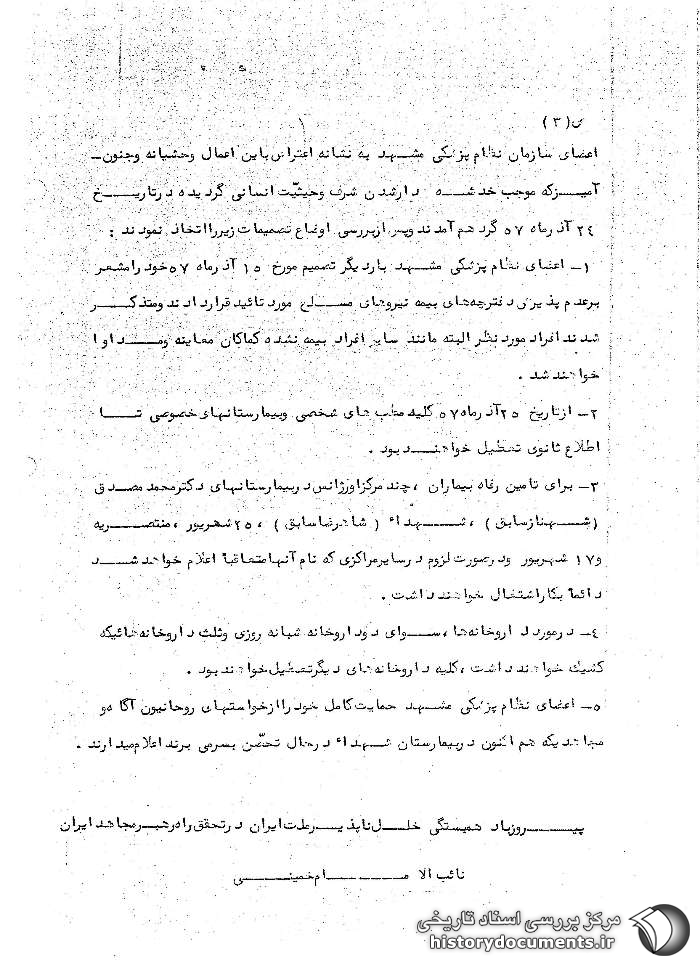 ص (۳)
اعضای سازمان نظام پزشکی مشهد به نشانه اعتراض باین اعمال وحشیانه وجنون‌ـ
آمیزکه موجب خدشه دارشدن شرف وحیثیّت انسانی گردیده درتاریخ
۲۴ آذرماه ۵۷ گردهم آمدند وپس ازبررسی اوضاع تصمیمات زیررااتخاذ نمودند :
۱ـ اعضای نظام پزشکی مشهد باردیگر تصمیم مورخ ۱۵ آذرماه ۵۷خودرامشعر
برعدم پذیرش دفترچه‌های بیمه نیروهای مسلح مورد تائید قراردادند ومتذکر
شدندافراد موردنظر البته مانند سایرافراد بیمه نشده کماکان معاینه ومداوا
خواهند شد .
۲ـ ازتاریخ ۲۵آذرماه۵۷ کلیه مطب های شخصی وبیمارستانهای خصوصی تا
اطلاع ثانوی تعطیل خواهند بود .
۳ـ برای تامین رفاه بیماران ،چندمرکزاورژانس دربیمارستانهای دکترمحمدمصدق
(شهنازسابق) ،شهداء (شاهرضاسابق) ،۲۵شهریور ،منتصریه
و۱۷ شهریور ودرصورت لزوم درسایرمراکزی که نام آنهامتعاقباً اعلام خواهدشد
دائماً بکاراشتغال خواهند داشت .
۴ـ درمورد داروخانه‌ها ،سوای دوداروخانه شبانه روزی وثلث داروخانه‌هائیکه
کشیک خواهند داشت ،کلیه داروخانه‌های دیگرتعطیل خواهند بود .
۵ـ اعضای نظام پزشکی مشهد حمایت کامل خودراازخواستهای روحانیون آگاه‌و
مجاهدیکه هم اکنون دربیمارستان شهداء درحال تحصّن بسرمی برند اعلام‌میدارند .
پیروزباد همبستگی خلل‌ناپذیرملت ایران درتحقق راه رهبرمجاهدایران
نائب الامام خمینی
مرکز بررسی اسناد تاریخی
historydocuments.ir